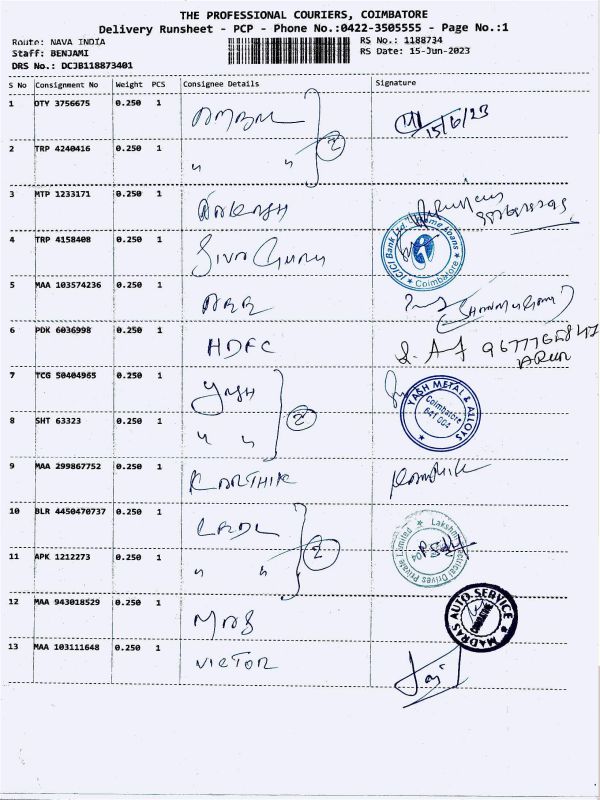 THE PROFESSIONAL COURIERS, COIMBATORE
Delivery Runsheet - PCP - Phone No.:0422-3505555 - Page No.:1
Route: NAVA INDIA
Staff: BENJAMI
DRS No.: DCJB118873401
RS No.: 1188734
RS Date: 15-Jun-2023
S No Consignment No Weight PCS Consignee Details Signature
1 DTY 3756675 0.250 1 15/6/23
2 TRP 4240416 0.250 1 " " 2
3 MTP 1233171 0.250 1
4 TRP 4158408 0.250 1 Siva Guru ICICI Bank Ltd. Home Loans * Coimbatore *
5 MAA 103574236 0.250 1
6 PDK 6036998 0.250 1 HDFC ARUN
7 TCG 50404965 0.250 1 YASH YASH METAL & ALLOYS Coimbatore 641 004
8 SHT 63323 0.250 1 " " 2
9 MAA 299867752 0.250 1 KARTHIK Karthik
10 BLR 4450470737 0.250 1 Lakshmi Electrical Drives Private Limited
11 APK 1212273 0.250 1 " " 2
12 MAA 943018529 0.250 1 MAS MADRAS AUTO SERVICE
13 MAA 103111648 0.250 1 VICTOR